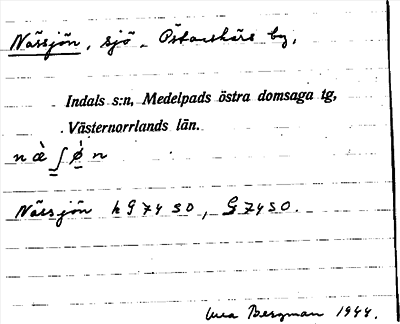 Nässjön, sjö. Östanskärs by,
Indals s:n, Medelpads östra domsaga tg,
Västernorrlands län.
næ̀ʃø̀n
Nässjön h G 74 SO, G 74 SO.
Bergman 1944.